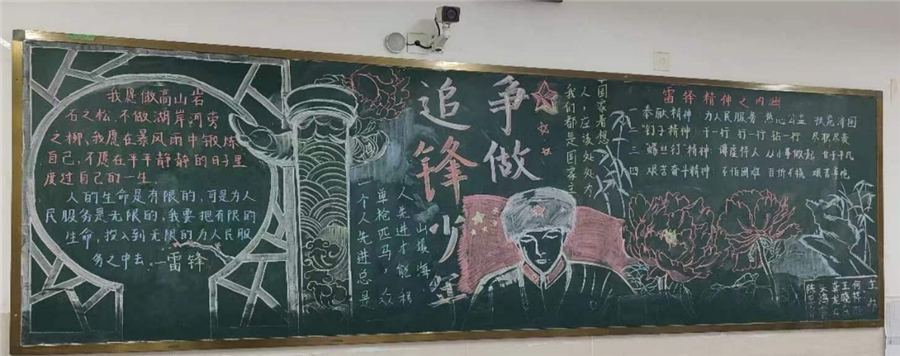 我愿做高山岩
石之松,不做湖岸河旁
之柳,我愿在暴风雨中锻炼
自己,不愿在平平静静的日子里
度过自己的一生
人的生命是有限的,可是为人
民服务是无限的,我要把有限的
生命,投入到无限的为人民服
务之中去.—雷锋
一个人先进总是
单枪匹马,众
人先进才能移
山填海
争做
追锋少年
我们都是国家主
人,应该处处为
国家着想
雷锋精神之内
一 奉献精神 为人民服务 热心公益 扶危济困
二 "钉子精神" 干一行 钻一行 尽职尽责
三 "螺丝钉"精神: 从小事做起 甘于平凡
四 艰苦奋斗精神 不怕困难 百折不挠